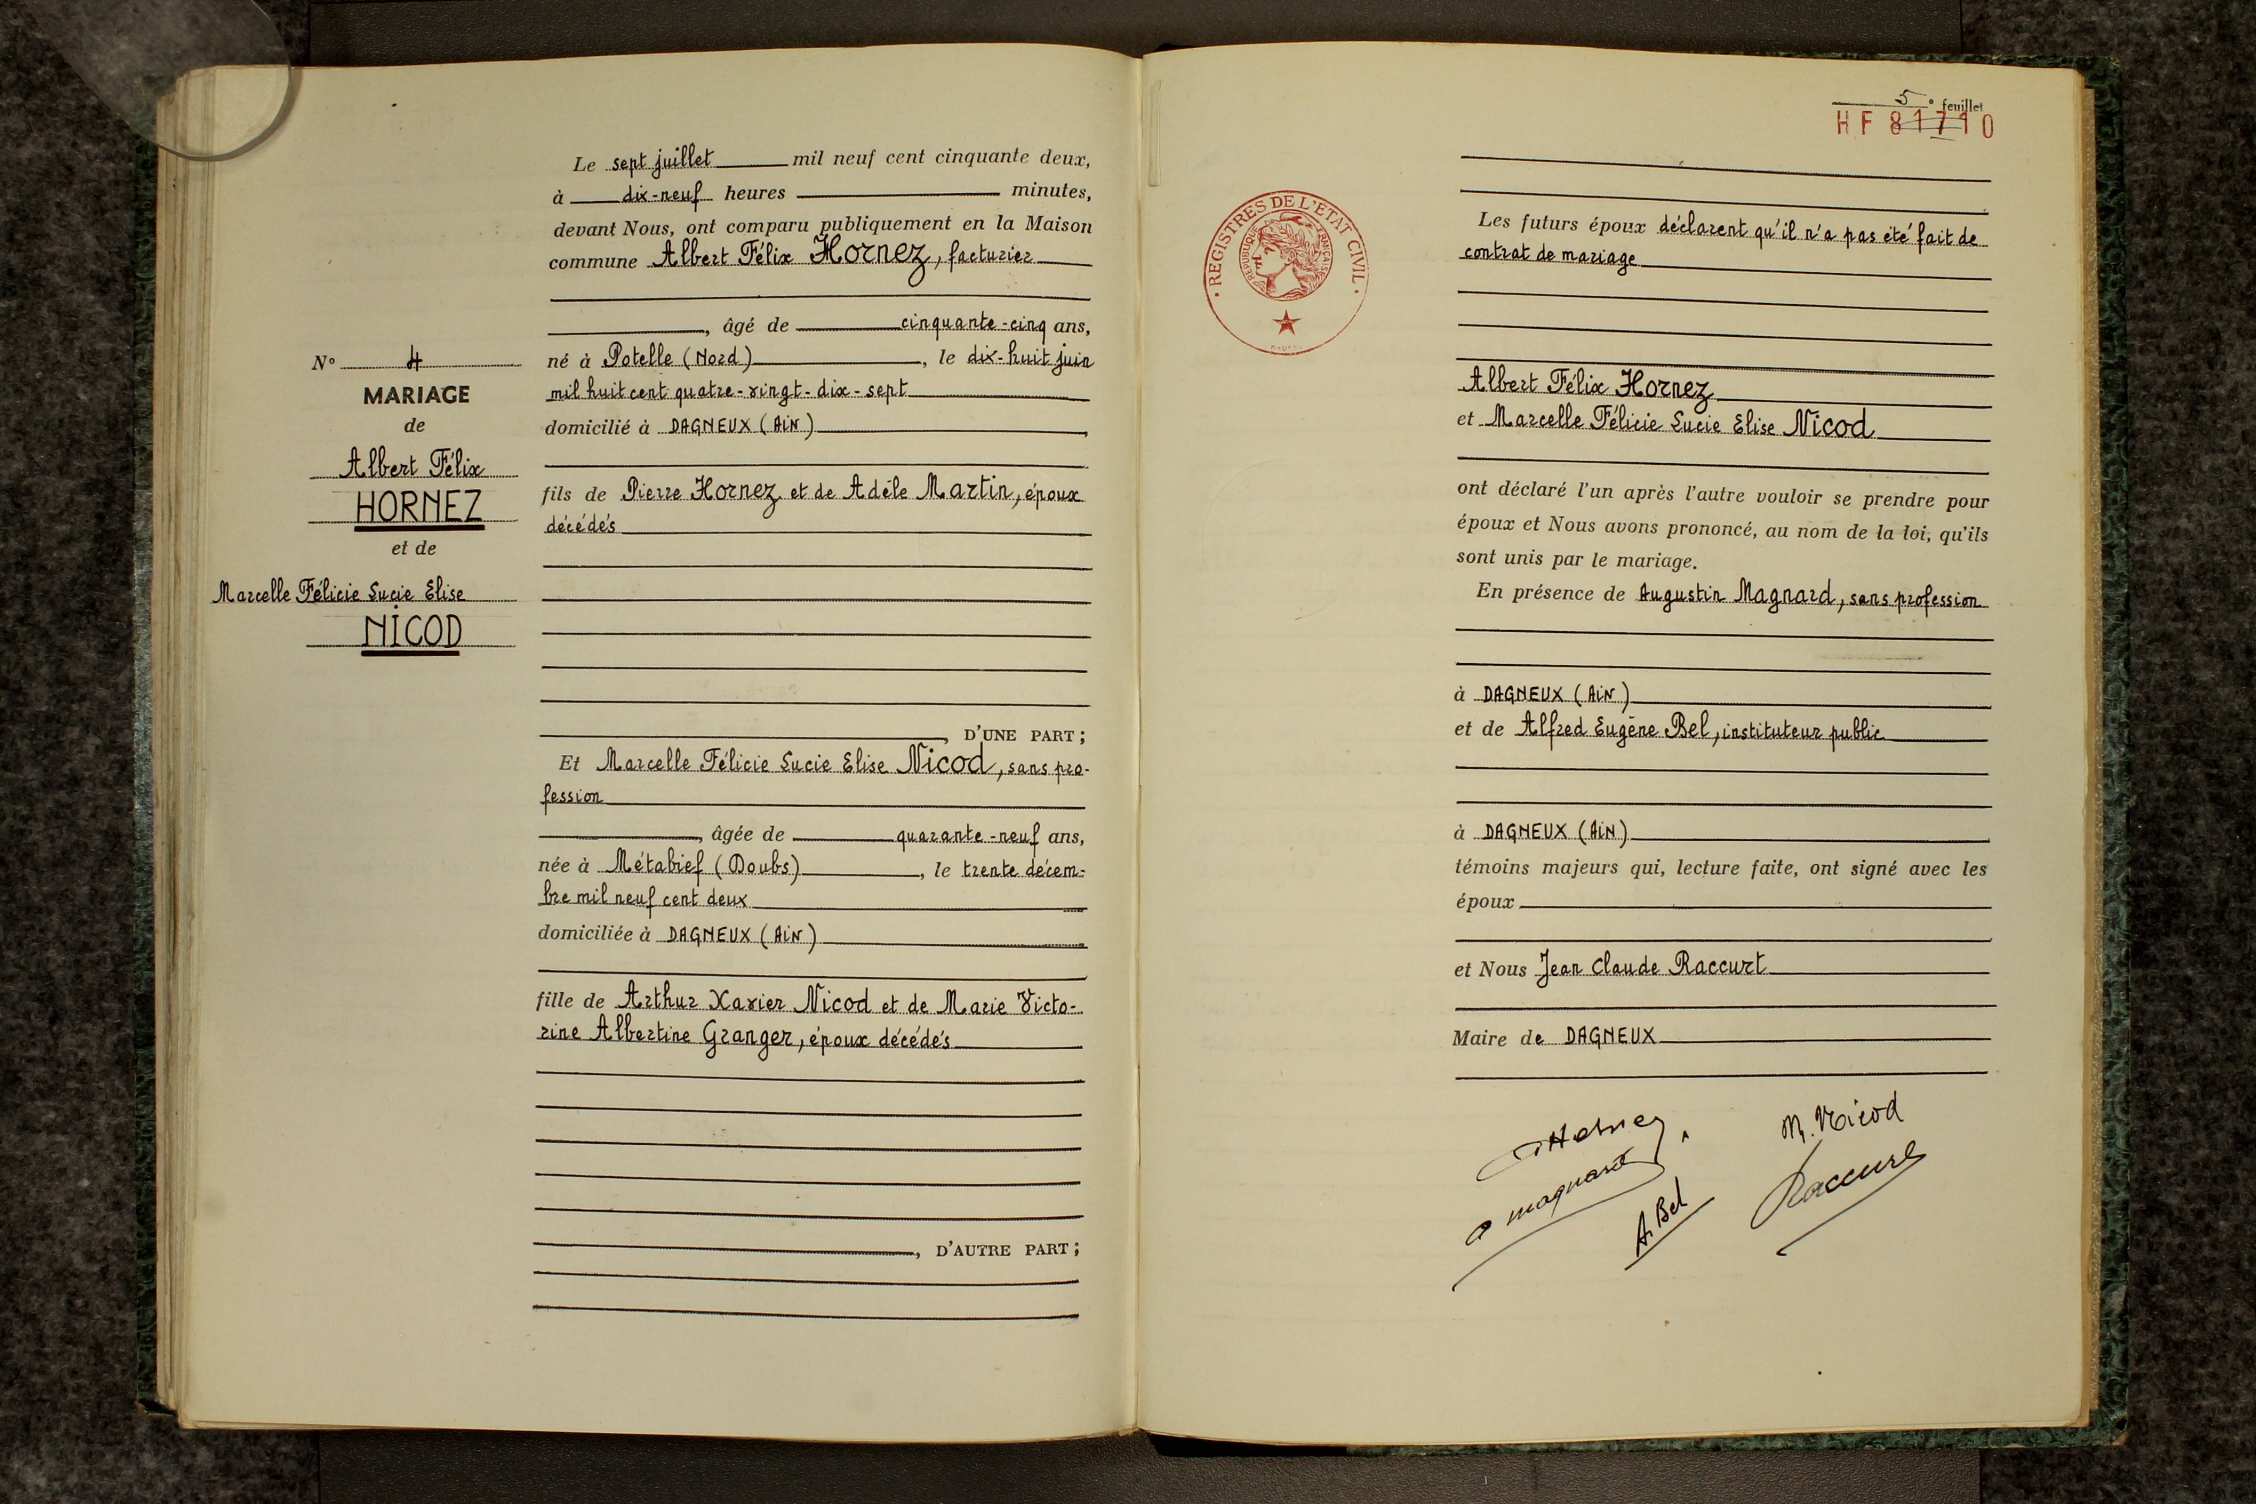 N° 4
MARIAGE
de
Albert Félix
HORNEZ
et de
Marcelle Félicie Lucie Elise
NICOD
Le sept juillet mil neuf cent cinquante deux,
à dix-neuf heures minutes,
devant Nous, ont comparu publiquement en la Maison
commune Albert Félix Hornez, facturier
, âgé de cinquante-cinq ans,
né à Potelle (Nord) , le dix-huit juin
mil huit cent quatre-vingt-dix-sept
domicilié à DAGNEUX (AIN) ,
fils de Pierre Hornez et de Adèle Martin, époux
décédés
, D'UNE PART ;
Et Marcelle Félicie Lucie Elise Nicod, sans pro-
fession
, âgée de quarante-neuf ans,
née à Métabief (Doubs) , le trente décem-
bre mil neuf cent deux
domiciliée à DAGNEUX (AIN)
fille de Arthur Xavier Nicod et de Marie Victo-
rine Albertine Granger, époux décédés
, D'AUTRE PART ;
5° feuillet
HF 81710
REGISTRES DE L'ETAT CIVIL
REPUBLIQUE FRANÇAISE
Les futurs époux déclarent qu'il n'a pas été fait de
contrat de mariage
Albert Félix Hornez
et Marcelle Félicie Lucie Elise Nicod
ont déclaré l'un après l'autre vouloir se prendre pour
époux et Nous avons prononcé, au nom de la loi, qu'ils
sont unis par le mariage.
En présence de Augustin Magnard, sans profession
à DAGNEUX (AIN)
et de Alfred Eugène Bel, instituteur public
à DAGNEUX (AIN)
témoins majeurs qui, lecture faite, ont signé avec les
époux
et Nous Jean Claude Raccurt
Maire de DAGNEUX
Hornez
M. Nicod
magnard
A. Bel
Raccurt